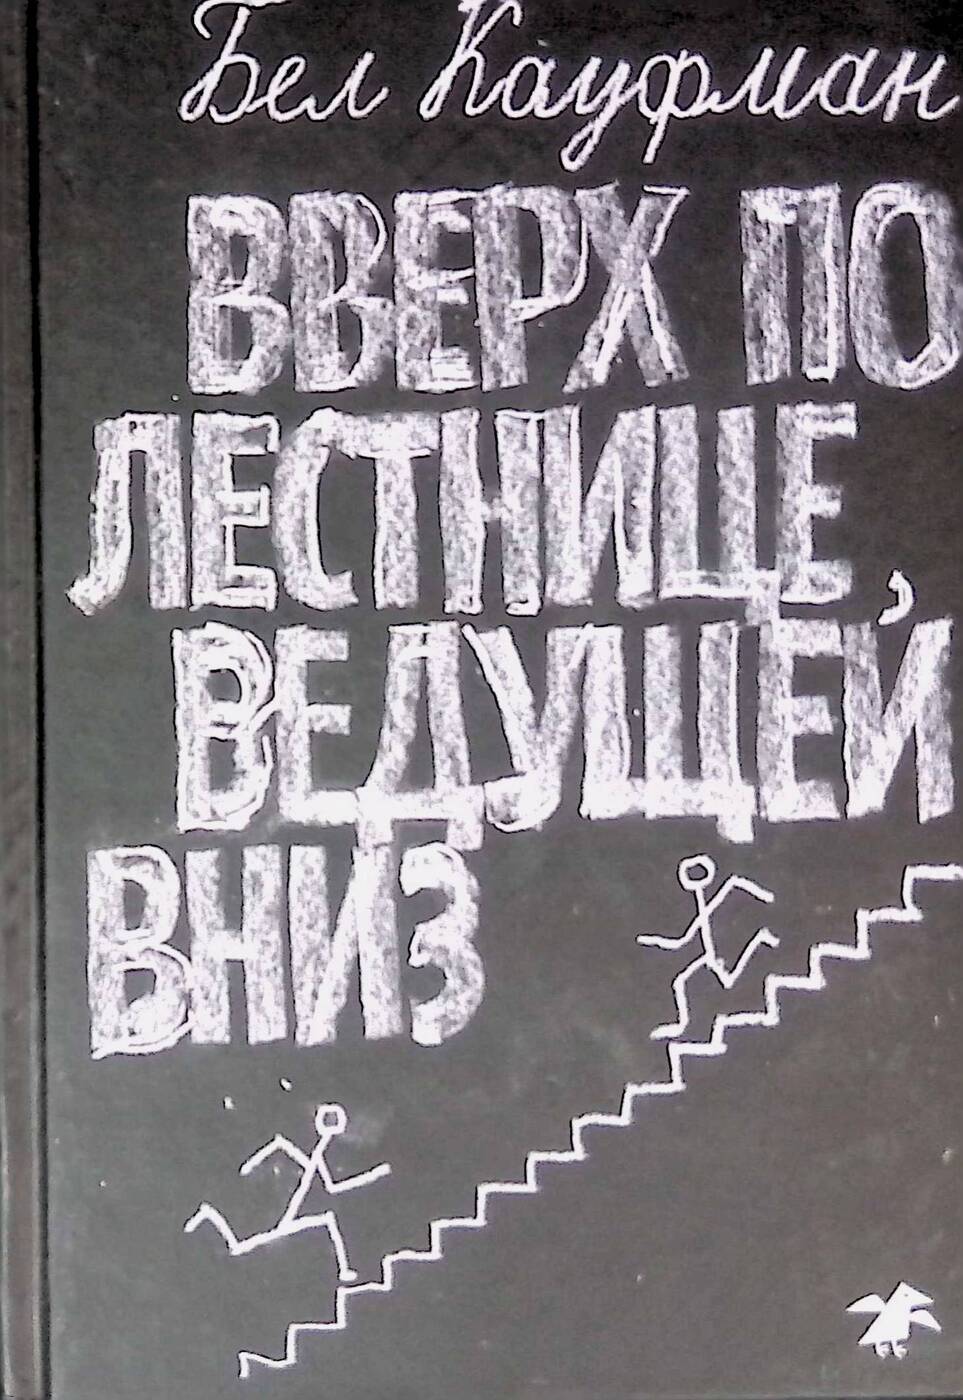 Бел Кауфман
ВВЕРХ ПО
ЛЕСТНИЦЕ,
ВЕДУЩЕЙ
ВНИЗ